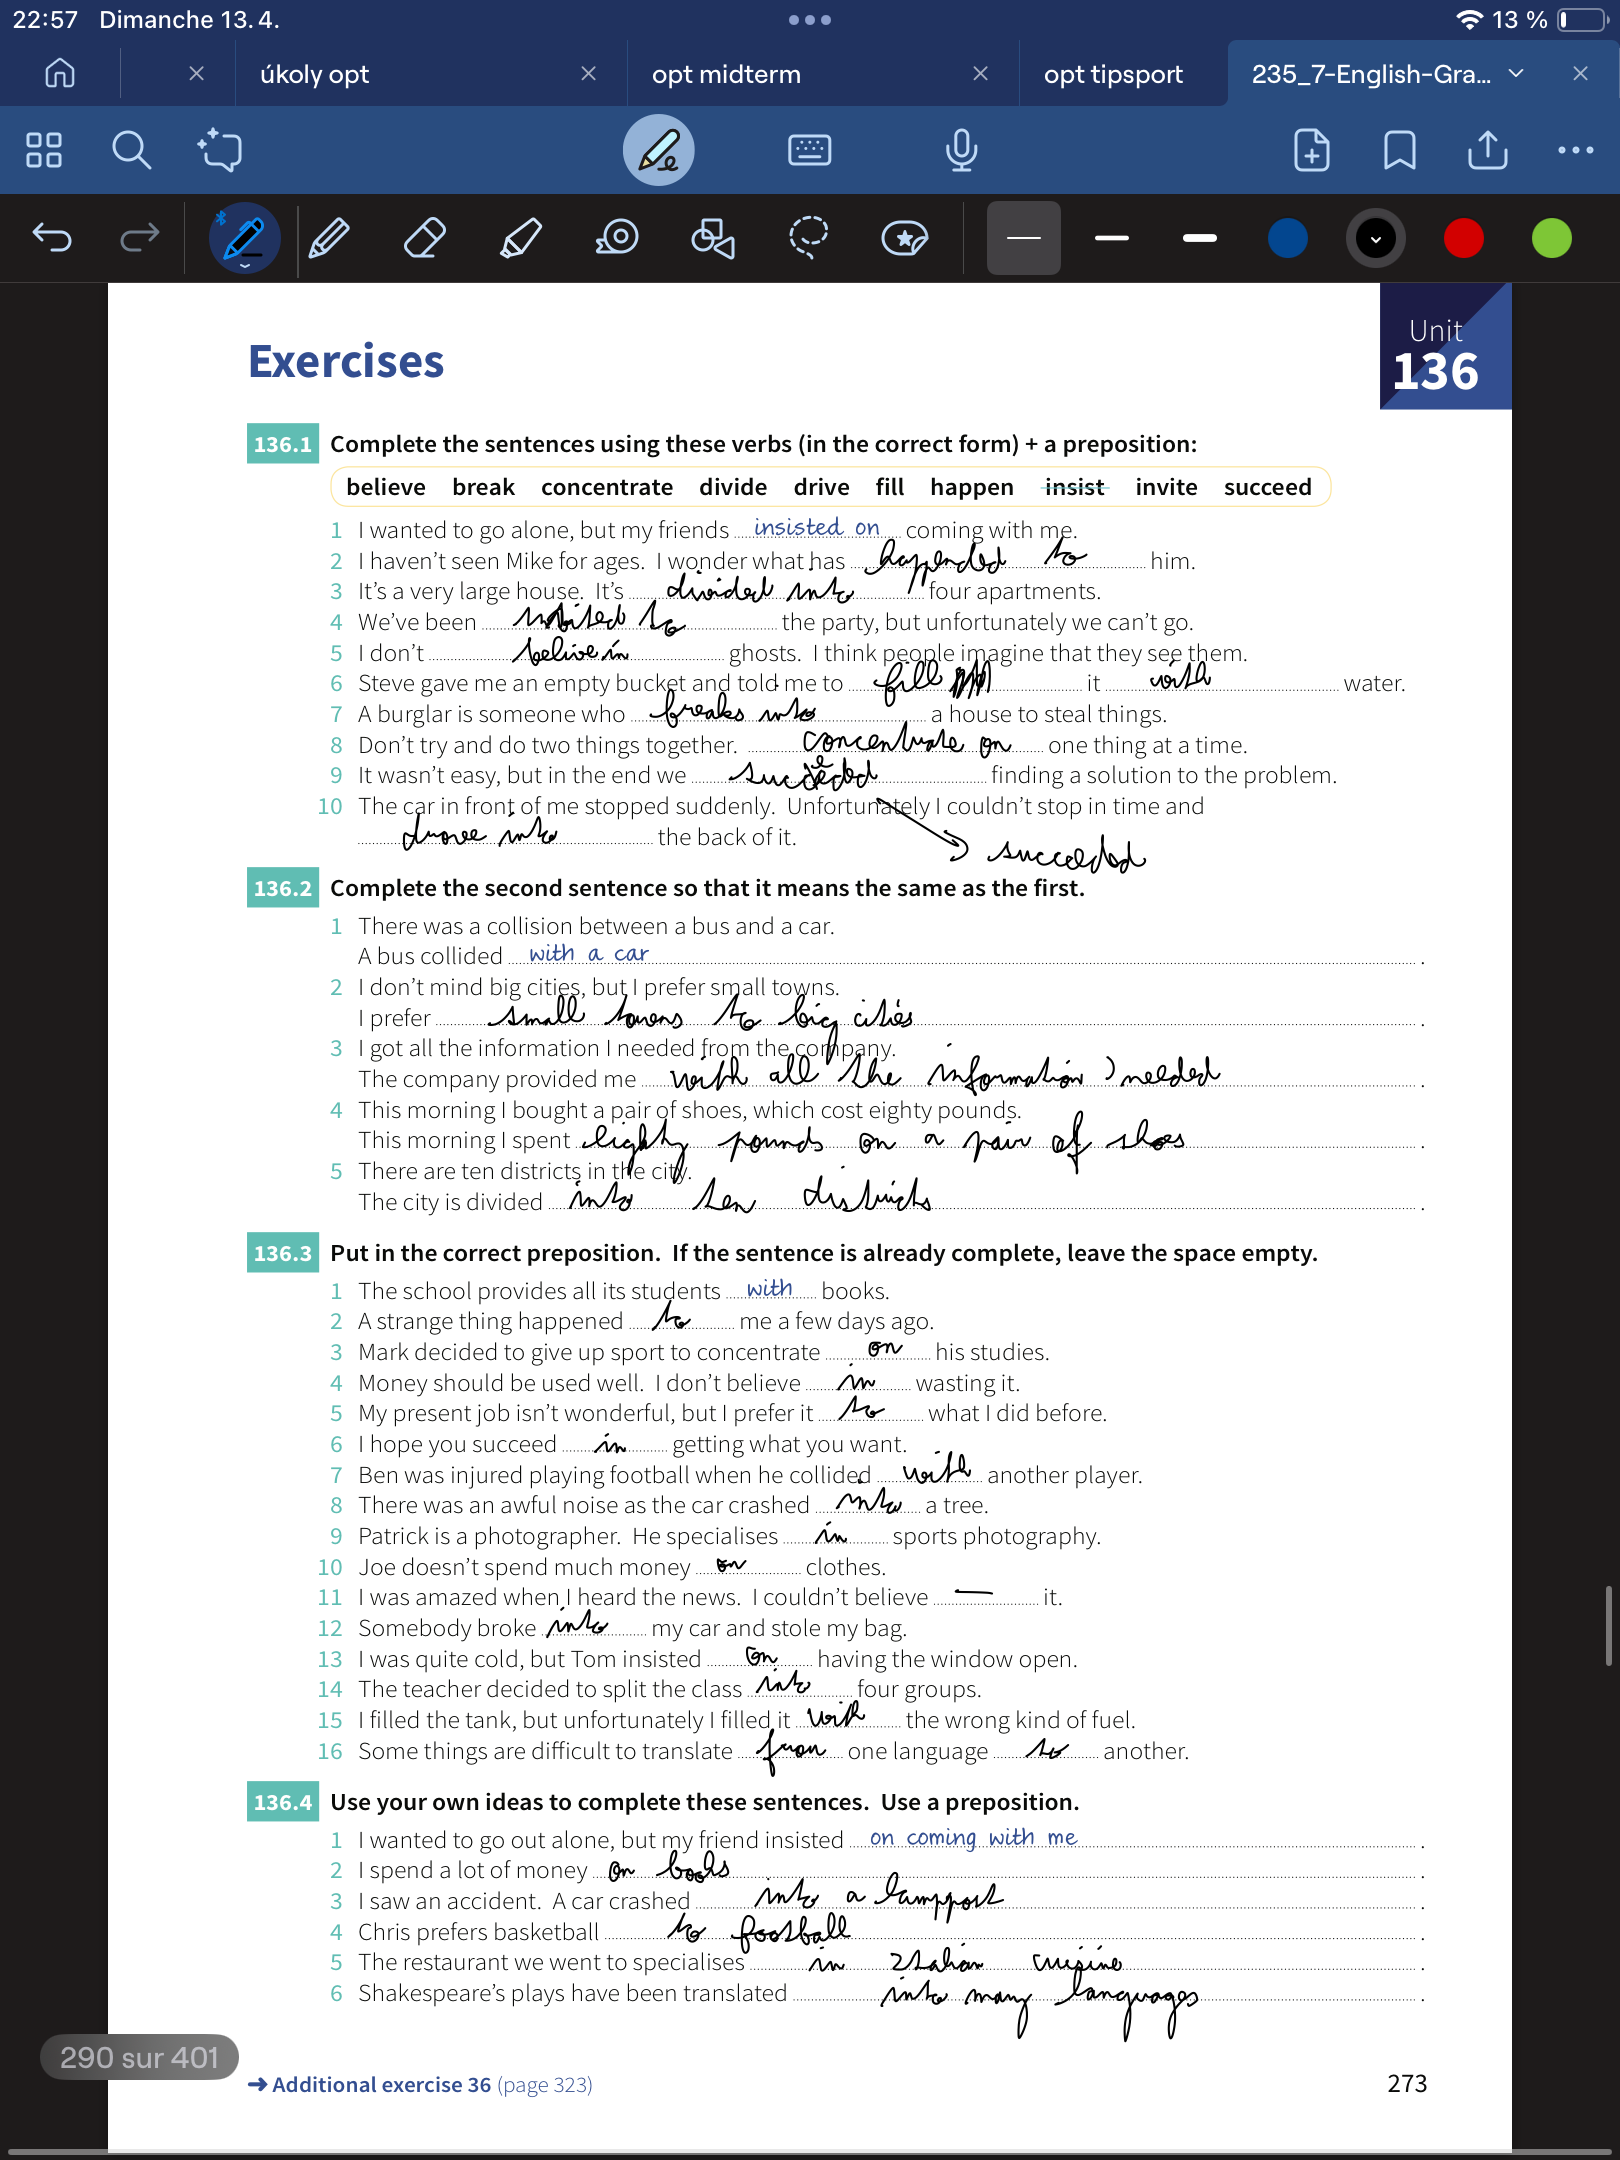 22:57 Dimanche 13.4.
13 %
úkoly opt
opt midterm
opt tipsport
235_7-English-Gra...
Exercises
Unit
136
136.1 Complete the sentences using these verbs (in the correct form) + a preposition:
believe break concentrate divide drive fill happen insist invite succeed
1 I wanted to go alone, but my friends insisted on coming with me.
2 I haven't seen Mike for ages. I wonder what has happended to him.
3 It's a very large house. It's divided into four apartments.
4 We've been invited to the party, but unfortunately we can't go.
5 I don't belive in ghosts. I think people imagine that they see them.
6 Steve gave me an empty bucket and told me to fill it with water.
7 A burglar is someone who breaks into a house to steal things.
8 Don't try and do two things together. concentrate on one thing at a time.
9 It wasn't easy, but in the end we succeeded finding a solution to the problem.
10 The car in front of me stopped suddenly. Unfortunately I couldn't stop in time and
drove into the back of it.
succeeded
136.2 Complete the second sentence so that it means the same as the first.
1 There was a collision between a bus and a car.
A bus collided with a car .
2 I don't mind big cities, but I prefer small towns.
I prefer small towns to big cities .
3 I got all the information I needed from the company.
The company provided me with all the information I needed .
4 This morning I bought a pair of shoes, which cost eighty pounds.
This morning I spent eighty pounds on a pair of shoes .
5 There are ten districts in the city.
The city is divided into ten districts .
136.3 Put in the correct preposition. If the sentence is already complete, leave the space empty.
1 The school provides all its students with books.
2 A strange thing happened to me a few days ago.
3 Mark decided to give up sport to concentrate on his studies.
4 Money should be used well. I don't believe in wasting it.
5 My present job isn't wonderful, but I prefer it to what I did before.
6 I hope you succeed in getting what you want.
7 Ben was injured playing football when he collided with another player.
8 There was an awful noise as the car crashed into a tree.
9 Patrick is a photographer. He specialises in sports photography.
10 Joe doesn't spend much money on clothes.
11 I was amazed when I heard the news. I couldn't believe — it.
12 Somebody broke into my car and stole my bag.
13 I was quite cold, but Tom insisted on having the window open.
14 The teacher decided to split the class into four groups.
15 I filled the tank, but unfortunately I filled it with the wrong kind of fuel.
16 Some things are difficult to translate from one language to another.
136.4 Use your own ideas to complete these sentences. Use a preposition.
1 I wanted to go out alone, but my friend insisted on coming with me .
2 I spend a lot of money on books .
3 I saw an accident. A car crashed into a lamppost .
4 Chris prefers basketball to football .
5 The restaurant we went to specialises in Italian cuisine .
6 Shakespeare's plays have been translated into many languages .
290 sur 401
➜ Additional exercise 36 (page 323)
273